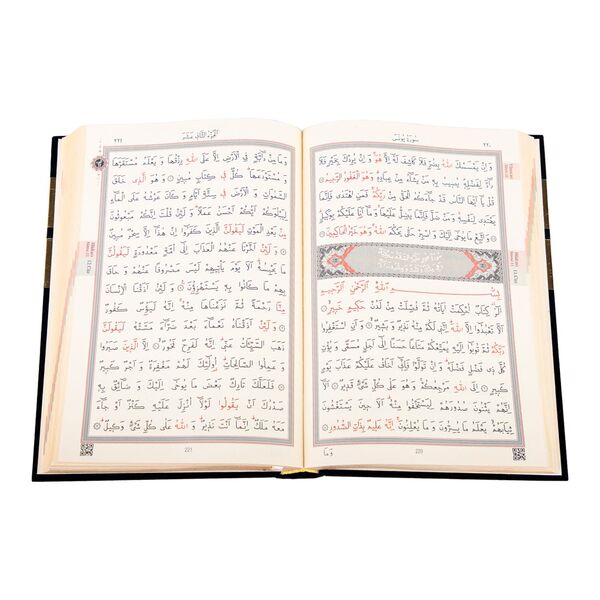 سُورَةُ يُونُسَ
٢٢٠
وَاِنْ يَمْسَسْكَ اللّٰهُ بِضُرٍّ فَلَا كَاشِفَ لَهُٓ اِلَّا هُوَ وَاِنْ يُرِدْكَ بِخَيْرٍ فَلَا
رَٓادَّ لِفَضْلِه۪ يُص۪يبُ بِه۪ مَنْ يَشَٓاءُ مِنْ عِبَادِه۪ وَهُوَ الْغَفُورُ الرَّح۪يمُ
قُلْ يَٓا اَيُّهَا النَّاسُ قَدْ جَٓاءَكُمُ الْحَقُّ مِنْ رَبِّكُمْ فَمَنِ اهْتَدٰى فَاِنَّمَا
يَهْتَد۪ي لِنَفْسِه۪ وَمَنْ ضَلَّ فَاِنَّمَا يَضِلُّ عَلَيْهَا وَمَٓا اَنَا۬ عَلَيْكُمْ بِوَك۪يلٍ
وَاتَّبِعْ مَا يُوحٰٓى اِلَيْكَ وَاصْبِرْ حَتّٰى يَحْكُمَ اللّٰهُ وَهُوَ خَيْرُ الْحَاكِم۪ينَ
بِسْمِ اللّٰهِ الرَّحْمٰنِ الرَّح۪يمِ
الٓرٰ كِتَابٌ اُحْكِمَتْ اٰيَاتُهُ ثُمَّ فُصِّلَتْ مِنْ لَدُنْ حَك۪يمٍ خَب۪يرٍ
اَلَّا تَعْبُدُٓوا اِلَّا اللّٰهَ اِنَّن۪ي لَكُمْ مِنْهُ نَذ۪يرٌ وَبَش۪يرٌ وَاَنِ اسْتَغْفِرُوا
رَبَّكُمْ ثُمَّ تُوبُٓوا اِلَيْهِ يُمَتِّعْكُمْ مَتَاعًا حَسَنًا اِلٰٓى اَجَلٍ مُسَمًّى وَيُؤْتِ
كُلَّ ذ۪ي فَضْلٍ فَضْلَهُ وَاِنْ تَوَلَّوْا فَاِنّ۪ٓي اَخَافُ عَلَيْكُمْ عَذَابَ يَوْمٍ
كَب۪يرٍ اِلَى اللّٰهِ مَرْجِعُكُمْ وَهُوَ عَلٰى كُلِّ شَيْءٍ قَد۪يرٌ اَلَٓا
اِنَّهُمْ يَثْنُونَ صُدُورَهُمْ لِيَسْتَخْفُوا مِنْهُ اَلَا ح۪ينَ يَسْتَغْشُونَ
ثِيَابَهُمْ يَعْلَمُ مَا يُسِرُّونَ وَمَا يُعْلِنُونَ اِنَّهُ عَل۪يمٌ بِذَاتِ الصُّدُورِ
وَمَا
220
اَلْجُزْءُ الثَّان۪ي عَشَرَ
٢٢١
وَمَا مِنْ دَٓابَّةٍ فِي الْاَرْضِ اِلَّا عَلَى اللّٰهِ رِزْقُهَا وَيَعْلَمُ مُسْتَقَرَّهَا
وَمُسْتَوْدَعَهَا كُلٌّ ف۪ي كِتَابٍ مُب۪ينٍ وَهُوَ الَّذ۪ي خَلَقَ
السَّمٰوَاتِ وَالْاَرْضَ ف۪ي سِتَّةِ اَيَّامٍ وَكَانَ عَرْشُهُ عَلَى الْمَٓاءِ
لِيَبْلُوَكُمْ اَيُّكُمْ اَحْسَنُ عَمَلًا وَلَئِنْ قُلْتَ اِنَّكُمْ مَبْعُوثُونَ
مِنْ بَعْدِ الْمَوْتِ لَيَقُولَنَّ الَّذ۪ينَ كَفَرُٓوا اِنْ هٰذَٓا اِلَّا سِحْرٌ مُب۪ينٌ
وَلَئِنْ اَخَّرْنَا عَنْهُمُ الْعَذَابَ اِلٰٓى اُمَّةٍ مَعْدُودَةٍ لَيَقُولُنَّ
مَا يَحْبِسُهُ اَلَا يَوْمَ يَأْت۪يهِمْ لَيْسَ مَصْرُوفًا عَنْهُمْ وَحَاقَ
بِهِمْ مَا كَانُوا بِه۪ يَسْتَهْزِؤُ۫نَ وَلَئِنْ اَذَقْنَا الْاِنْسَانَ
مِنَّا رَحْمَةً ثُمَّ نَزَعْنَاهَا مِنْهُ اِنَّهُ لَيَؤُ۫سٌ كَفُورٌ
وَلَئِنْ اَذَقْنَاهُ نَعْمَٓاءَ بَعْدَ ضَرَّٓاءَ مَسَّتْهُ لَيَقُولَنَّ
ذَهَبَ السَّيِّـَٔاتُ عَنّ۪ي اِنَّهُ لَفَرِحٌ فَخُورٌ اِلَّا الَّذ۪ينَ صَبَرُوا
وَعَمِلُوا الصَّالِحَاتِ اُو۬لٰٓئِكَ لَهُمْ مَغْفِرَةٌ وَاَجْرٌ كَب۪يرٌ
فَلَعَلَّكَ تَارِكٌ بَعْضَ مَا يُوحٰٓى اِلَيْكَ وَضَٓائِقٌ بِه۪
صَدْرُكَ اَنْ يَقُولُوا لَوْلَٓا اُنْزِلَ عَلَيْهِ كَنْزٌ اَوْ جَٓاءَ
مَعَهُ مَلَكٌ اِنَّمَٓا اَنْتَ نَذ۪يرٌ وَاللّٰهُ عَلٰى كُلِّ شَيْءٍ وَك۪يلٌ
221